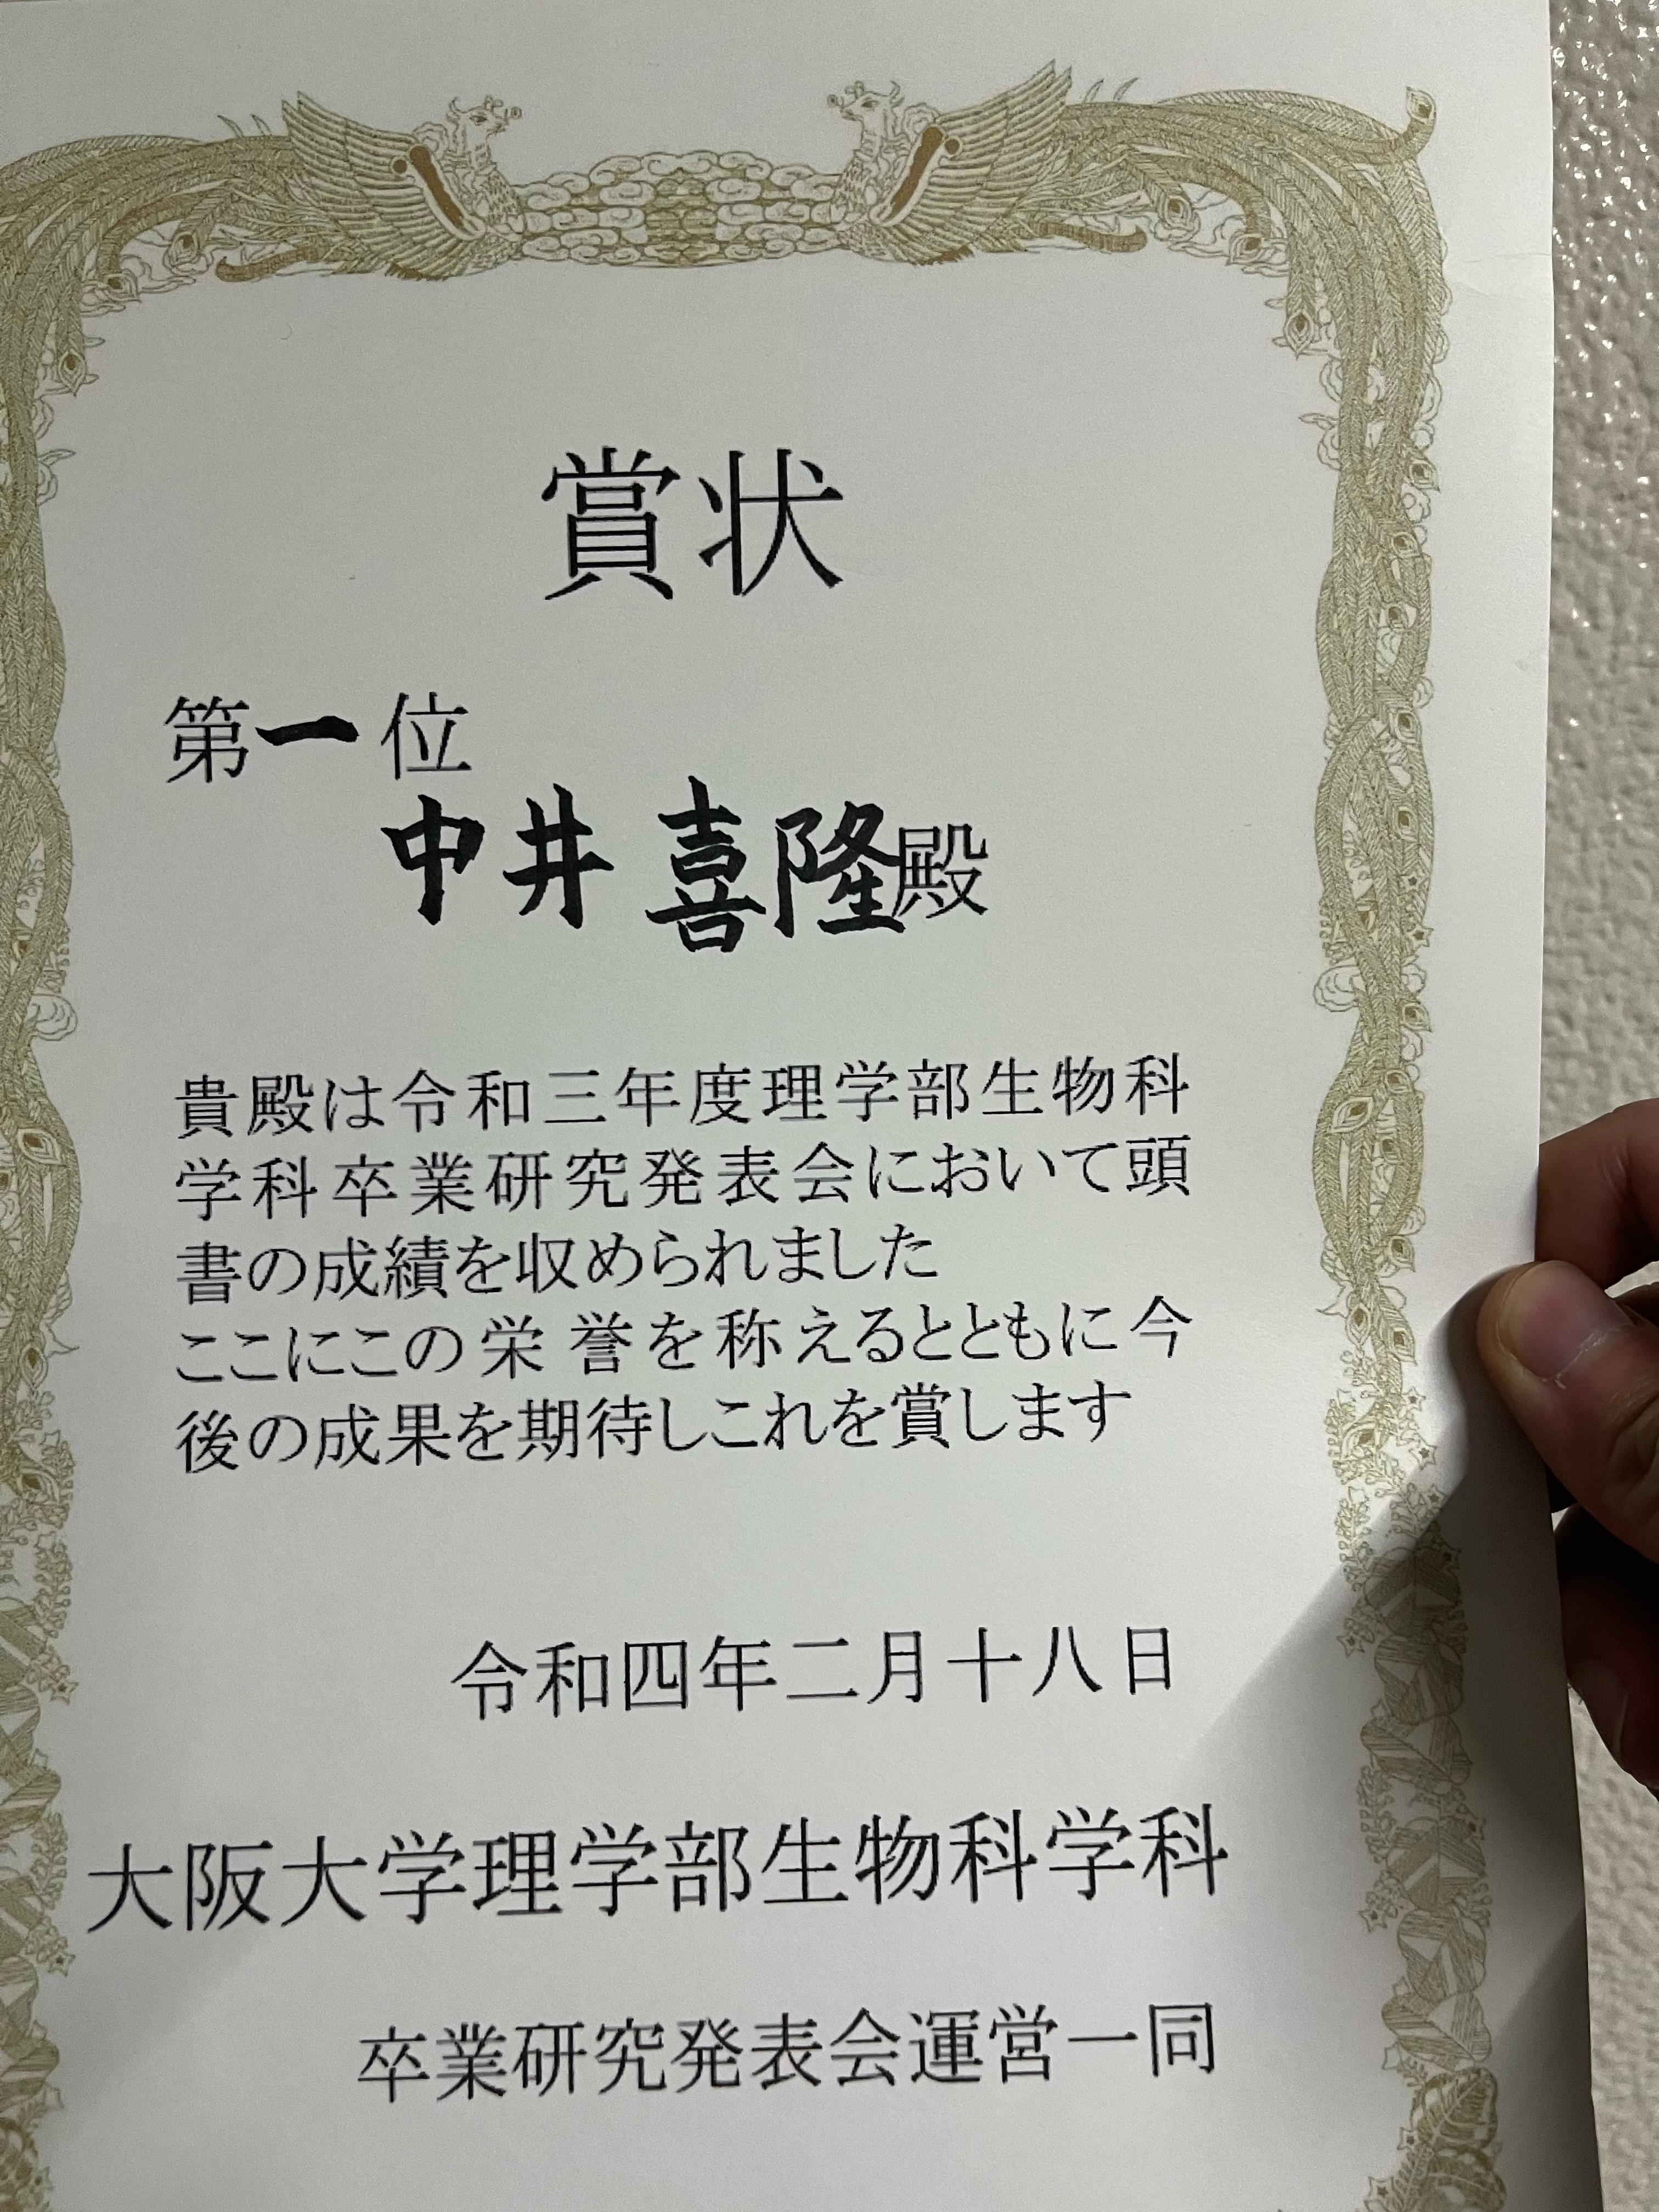 賞状
第一位
中井喜隆殿
貴殿は令和三年度理学部生物科
学科卒業研究発表会において頭
書の成績を収められました
ここにこの栄誉を称えるとともに今
後の成果を期待しこれを賞します
令和四年二月十八日
大阪大学理学部生物科学科
卒業研究発表会運営一同